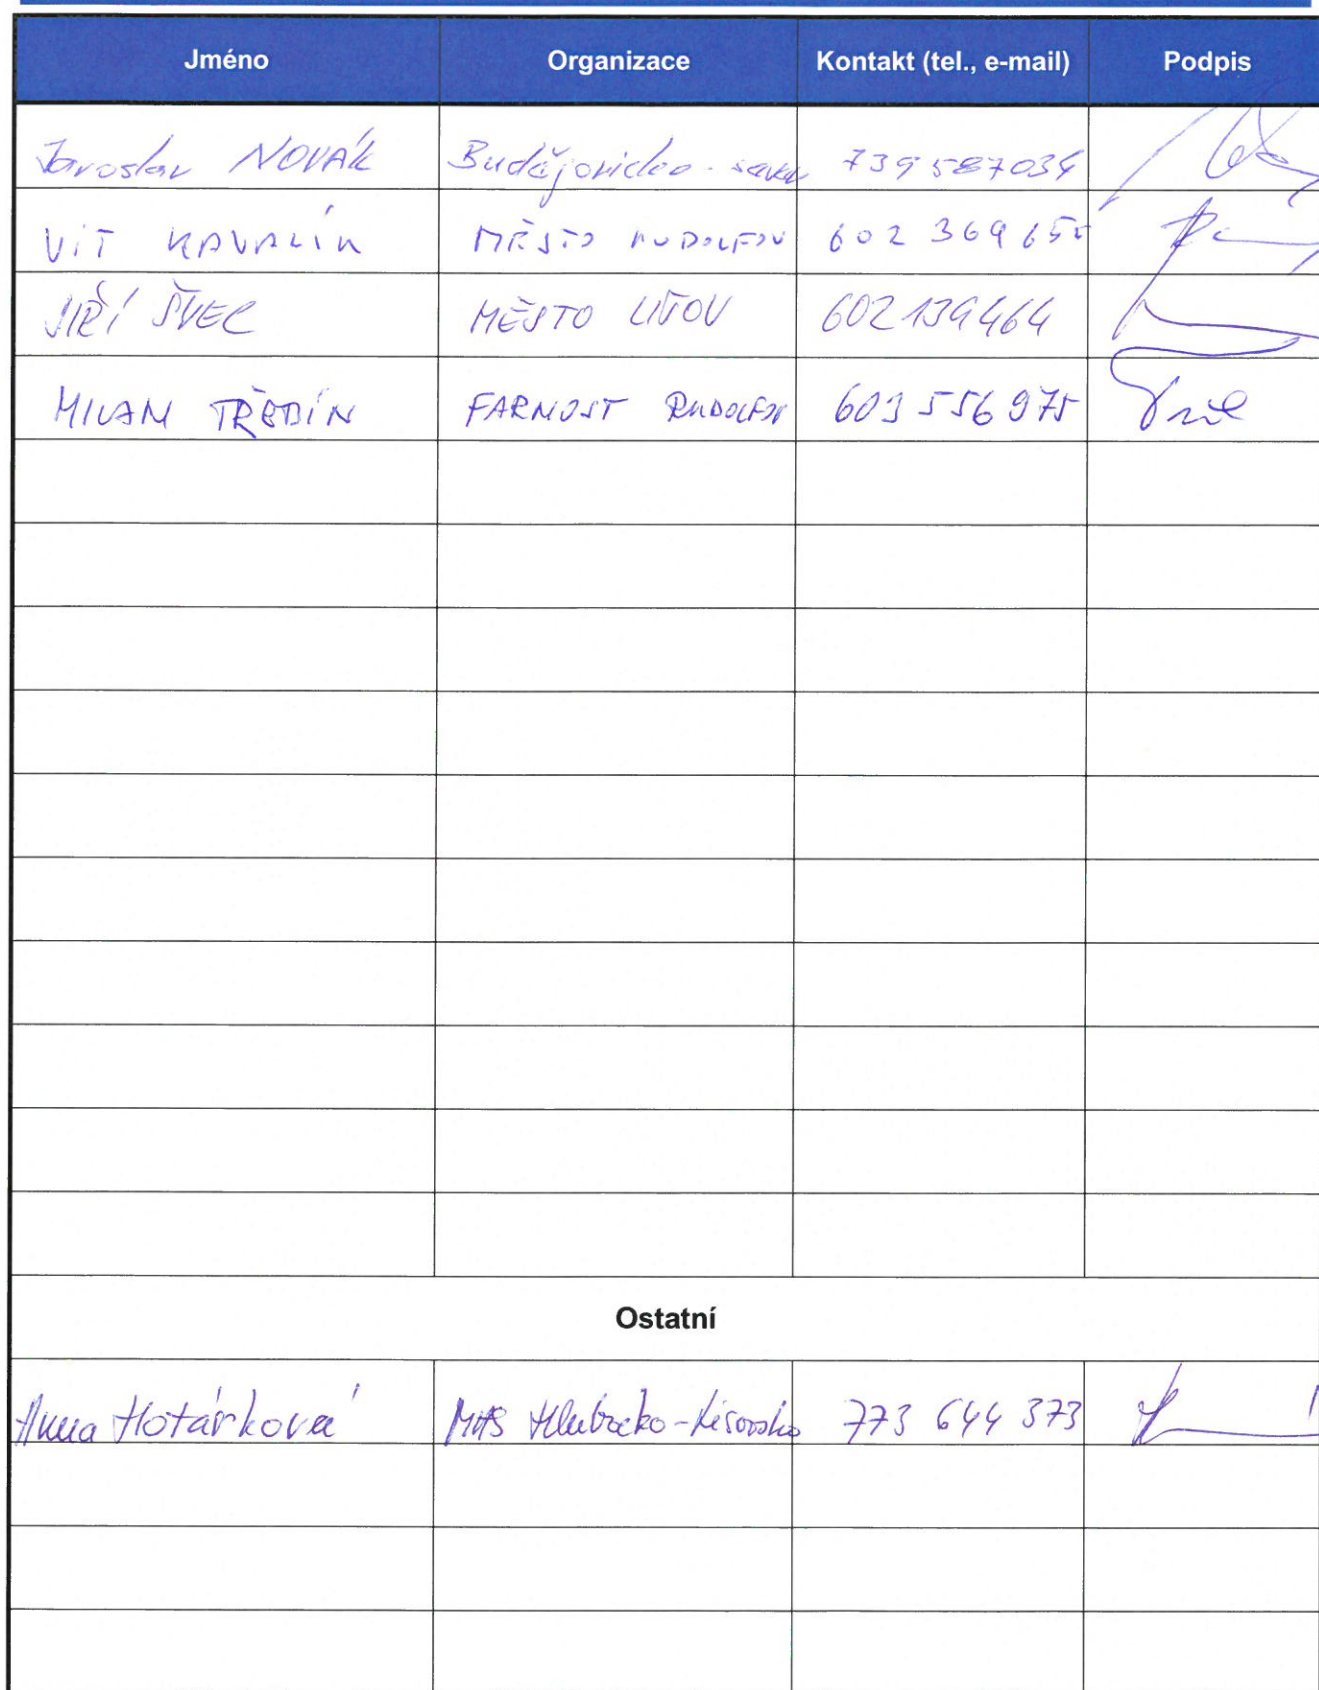 Jméno Organizace Kontakt (tel., e-mail) Podpis
Jaroslav NOVÁK Budějovicko - sever 739 587034
VÍT KAVALÍR MĚSTO RUDOLFOV 602 369 655
JIŘÍ ŠVEC MĚSTO LIŠOV 602 139 464
MILAN TŘEBÍN FARNOST RUDOLFOV 603 556 975
Ostatní
Anna Hotárková MAS Hlubocko-Lišovsko 773 644 373